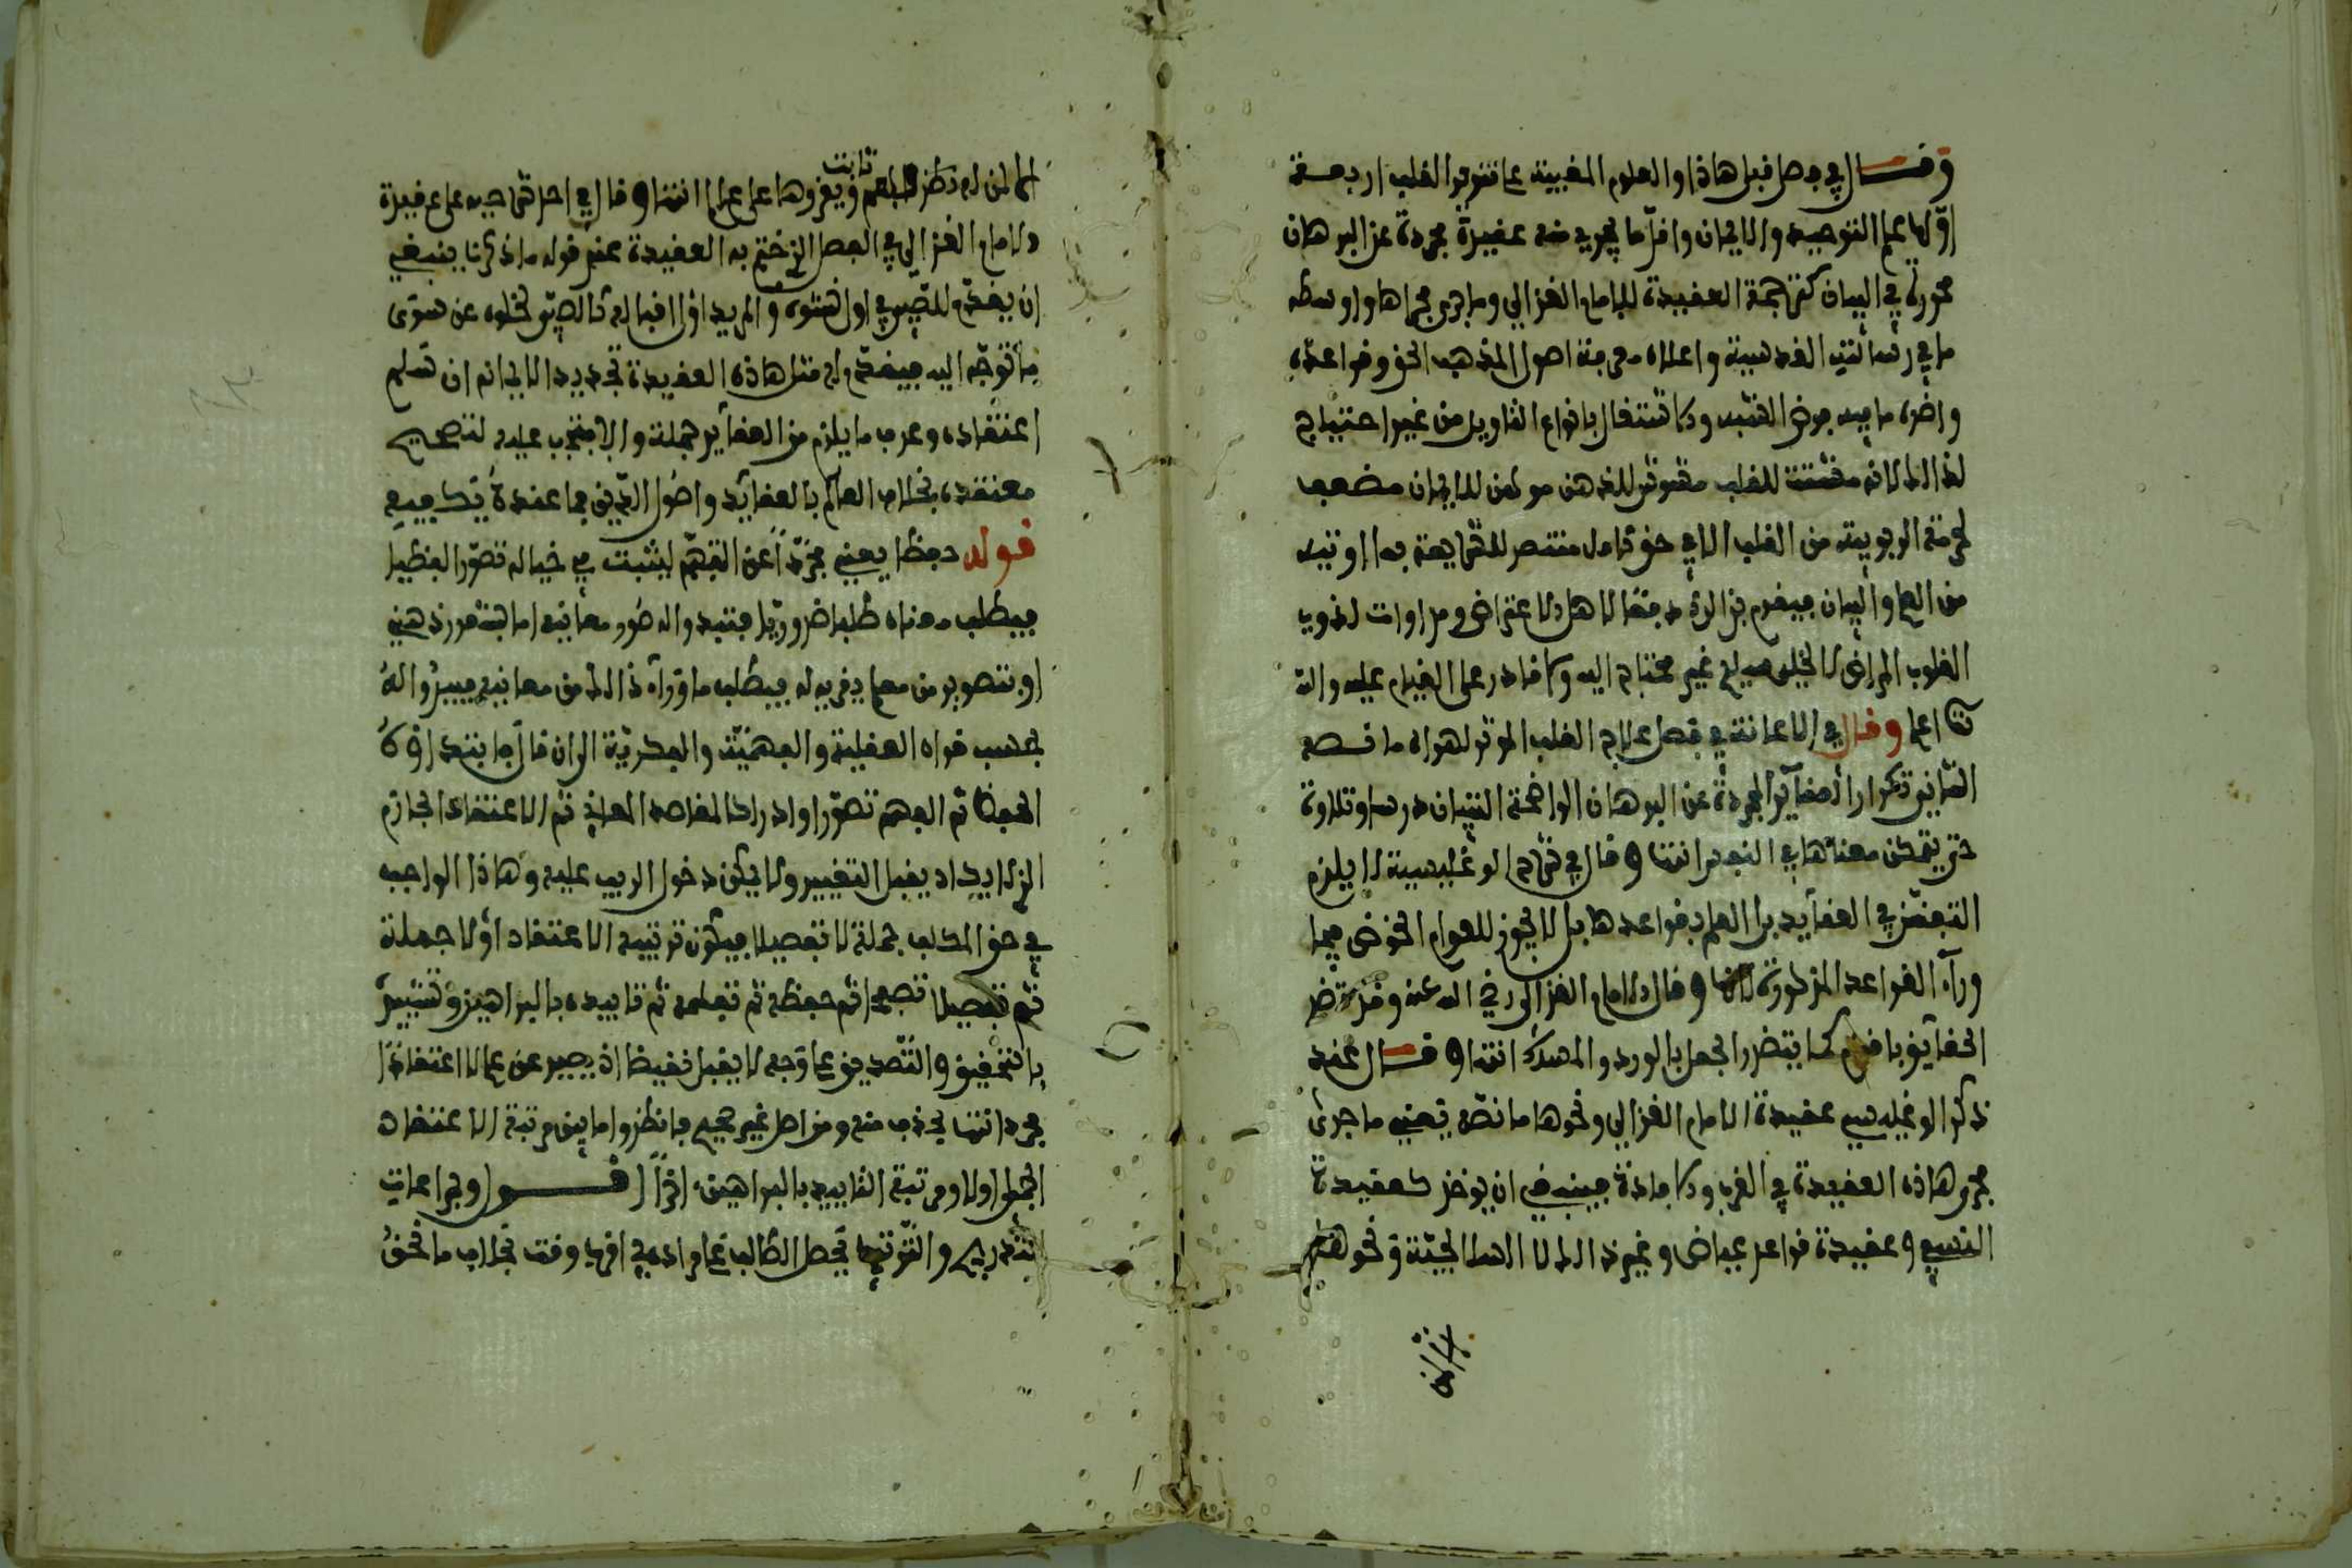 وقال في فصل قبل هاذا والعلوم المغيبة عما تنوير القلب اربعة
اولها علم التوحيد والايمان واقل ما يجري منه عقيدة مجردة عن البرهان
محررة في البيان كترجمة العقيدة للامام الغزالي وما جرى مجراها واوسطه
ما في رسالته القدسية واعلاه معرفة اصول المذهب الحق وقواعده
واضره ما فيه فرض الشبه والاشتغال بانواع التاويل من غير احتياج
لذالك لانه مشتت للقلب مشوش للذهن موهن للايمان مضعف
لحرمة الربوبية من القلب الا في حق كامل منتصر للشريعة بما اوتيه
من العلم والبيان فيقوم بذالك دفعا لاهل الاعتراض ومداوات لذوي
القلوب المراض لا لخلي سليم غير محتاج اليه ولا قادر على القيام عليه والله
اعلم وقال في الاعانة في فصل علاج القلب الموثر لهواه ما نصه
الثاني تكرار العقائد المجردة عن البرهان الواضحة التبيان درسا وتلاوة
حتى يتمكن معناها في النفس انتها وقال في شرح الوغليسية لا يلزم
التبصر في العقايد بل العلم بقواعدها بل لا يجوز للعوام الخوض فيما
وراء القواعد المذكورة انتها وقال الامام الغزالي رضي الله عنه وقد تضر
الحقائق باقوام كما يتضرر الجعل بالورد والمسك انتها وقال عند
ذكر الوغليسي عقيدة الامام الغزالي ونحوها ما نصه يعني ما جرى
مجرى هاذه العقيدة في القرب والافادة فينبغي ان يوخذ كعقيدة
النسفي وعقيدة قواعد عياض وغير ذالك لا السلالجية ونحوها
لمن له نظر ثابت ويقروها على عالم انتها وقال في احد شراحيه على عقيدة
الامام الغزالي في الفصل الذي ختم به العقيدة عند قوله ما ذكرنا ينبغي
ان يقدم للصبي في اول نشوه والمريد اول اقباله كالصبي لخلوه عن سوى
ما توجه اليه فيقدم له مثل هاذه العقيدة تجديدا لايمانه ان سلم
اعتقاده وعرف ما يلزم من العقائد جملة والا فتجب عليه لتصحيح
معتقده بخلاف العالم بالعقائد واصول الدين فما عنده يكفيه
قوله حفظا يعني مجردا عن الفهم ليثبت في خياله تصور الفظها
فيطلب معناه طلبا ضروريا فتبدو اله صور معانيه اما بتنور ذهني
او بتصوير من معلم يقربه له فيطلب ما وراء ذالك من معانيه فيبدوا له
بحسب قواه العقلية والفهمية والفكرية الى ان قال فابتداوه
الحفظ ثم الفهم تصورا وادراكا لمقاصد المعاني ثم الاعتقاد الجازم
الذي لا يكاد يقبل التغيير ولا يمكن دخول الريب عليه وهاذا الواجب
في حق المكلف جملة لا تفصيلا فيكون ترتيب الاعتقاد اولا جملة
ثم تفصيلا تصحيحا ثم حفظه ثم تعلمه ثم تاييده بالبراهين وتشييده
بالتحقيق والتصديق على وجه لا يقبل نقيضا اذ يصير عن علم لا اعتقادا
مجردا انتها بحذف منه ومن اصل غير صحيح فانظره اما بين مرتبة الاعتقاد
الجملي اولا ومرتبة التاييد بالبراهين اخرا اقول وبمراعات
التدريج والترتيب يحصل الطالب على مراده في اقرب وقت بخلاف ما نحن